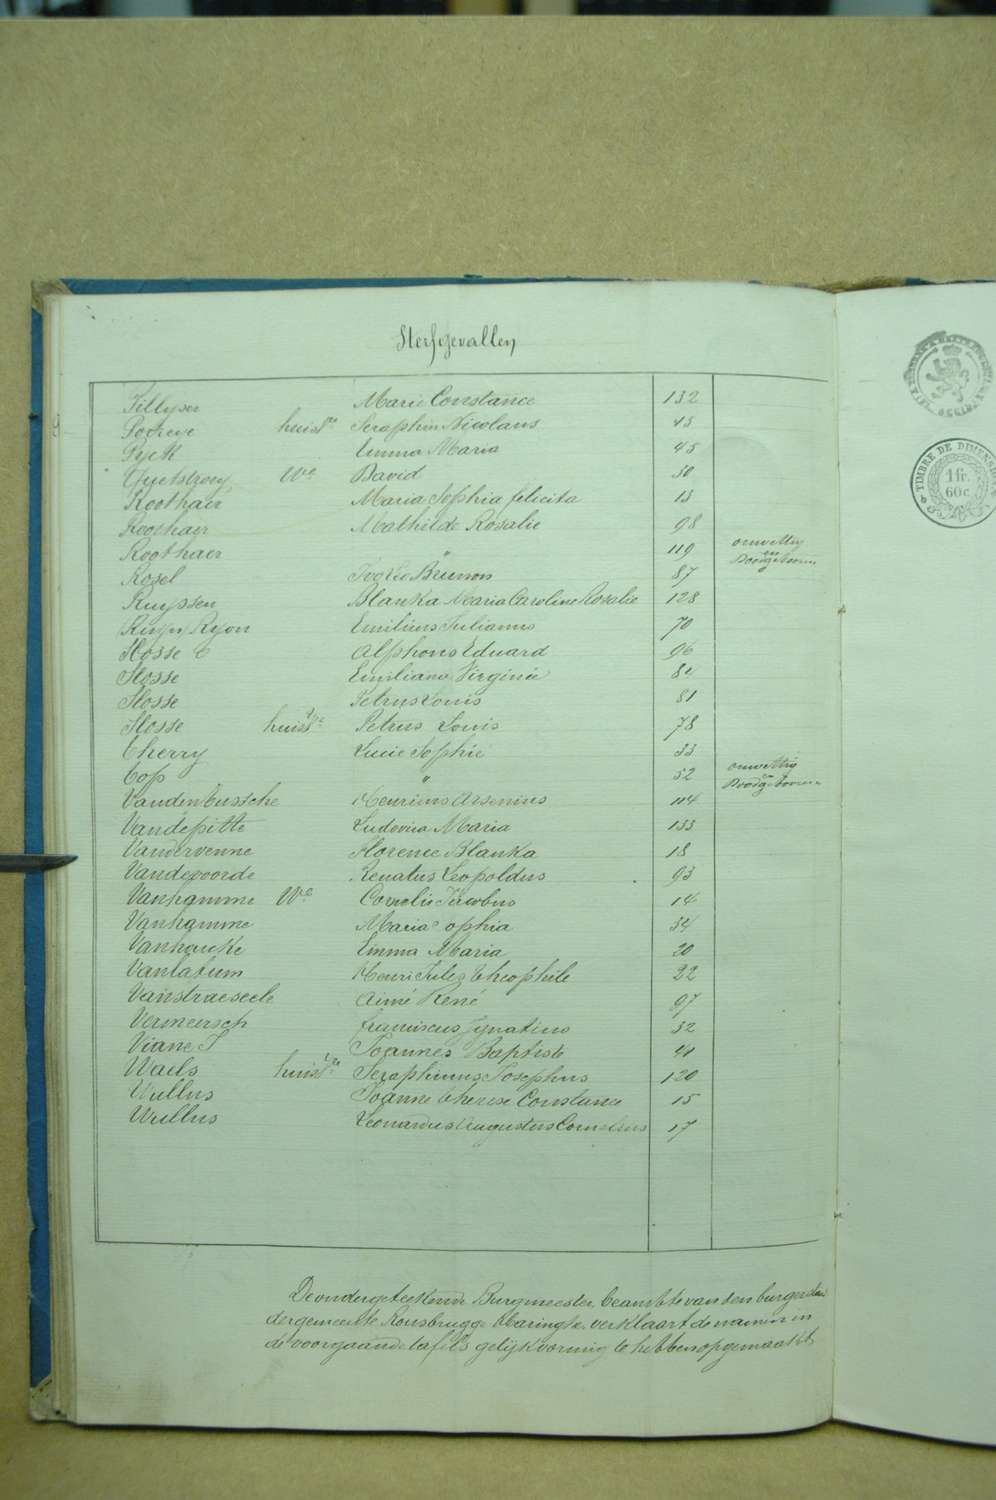 Sterfgevallen
Marie Constance 132
huisvre Seraphin Nicolaus 43
Pyck Emma Maria 45
We David 30
Roothaer Maria Sophia felicita 13
Roothaer Mathilde Rosalie 98
Roothaer " 119 onwettig en Doodgeboren
Rosel Brunon 87
Ruyssen Blanka Maria Caroline Rosalie 128
Ryon Emilius Julianus 70
Slosse C Alphons Eduard 96
Slosse Emiliana Virginie 84
Slosse Petrus Louis 81
Slosse huisvre Petrus Louis 78
Cherry Lucie Sophie 33
Cop " 52 onwettig en Doodgeboren
Vandenbussche Henrius Arsenius 114
Vandepitte Ludovica Maria 133
Vandervenne Florence Blanka 18
Vandevoorde Renatus Leopoldus 93
Vanhamme We Jacobus 14
Vanhamme Maria Sophia 34
Emma Maria 20
Vanlatum Henri Julez Theophile 22
Vanstraeseele Aimé René 97
Vermeersch franciscus Ignatius 32
Viane J Joannes Baptiste 41
Waels huisvre Seraphinus Josephus 120
Wullus Joanne Therese Constance 15
Wullus Leonardus Augustus Cornelius 17
De ondergeteekende Burgmeester, beambte van den burgerstand
der gemeente Rousbrugge Haringhe, verklaart de namen in
de voorgaande tafels gelijkvormig te hebben opgemaakt
TIMBRE DE DIMENSION
1 fr.
60 c.